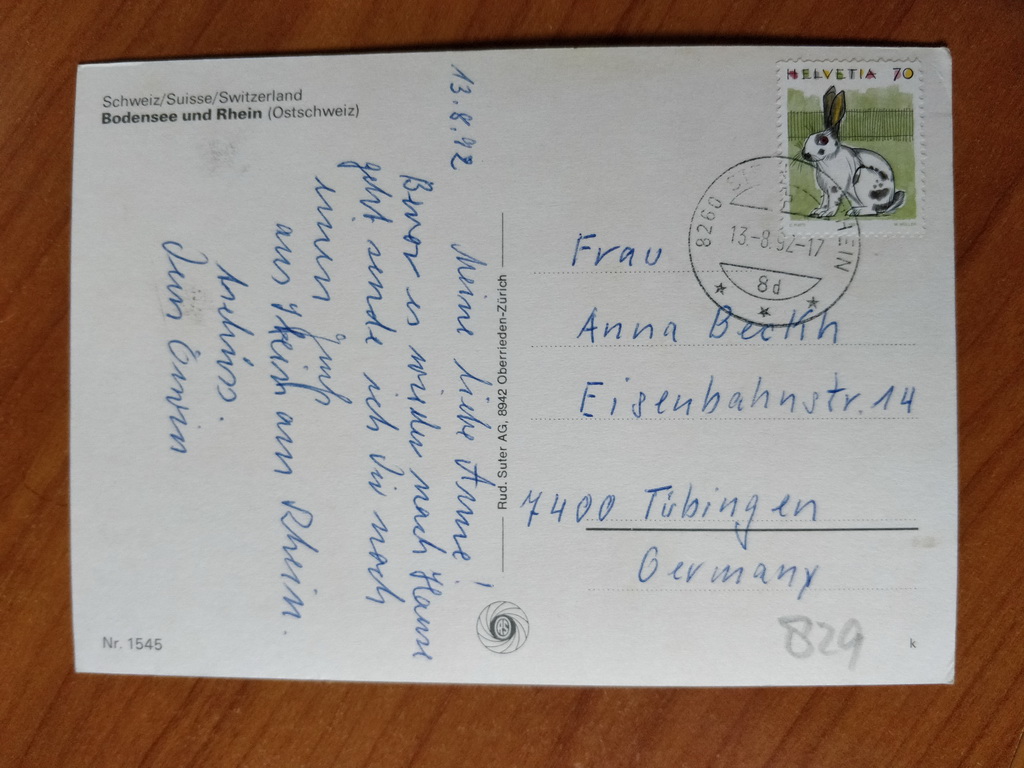 Schweiz/Suisse/Switzerland
Bodensee und Rhein (Ostschweiz)
13.8.92
Meine liebe Anne!
Bevor es wieder nach Hause
geht sende ich Dir noch
einen Gruß
aus Stein am Rhein.
Tschüss.
Dein Erwin
Rud. Suter AG, 8942 Oberrieden-Zürich
Nr. 1545
HELVETIA 70
8260 ST RHEIN
13.-8.92-17
8d
Frau
Anna Beckh
Eisenbahnstr. 14
7400 Tübingen
Germany
829
k